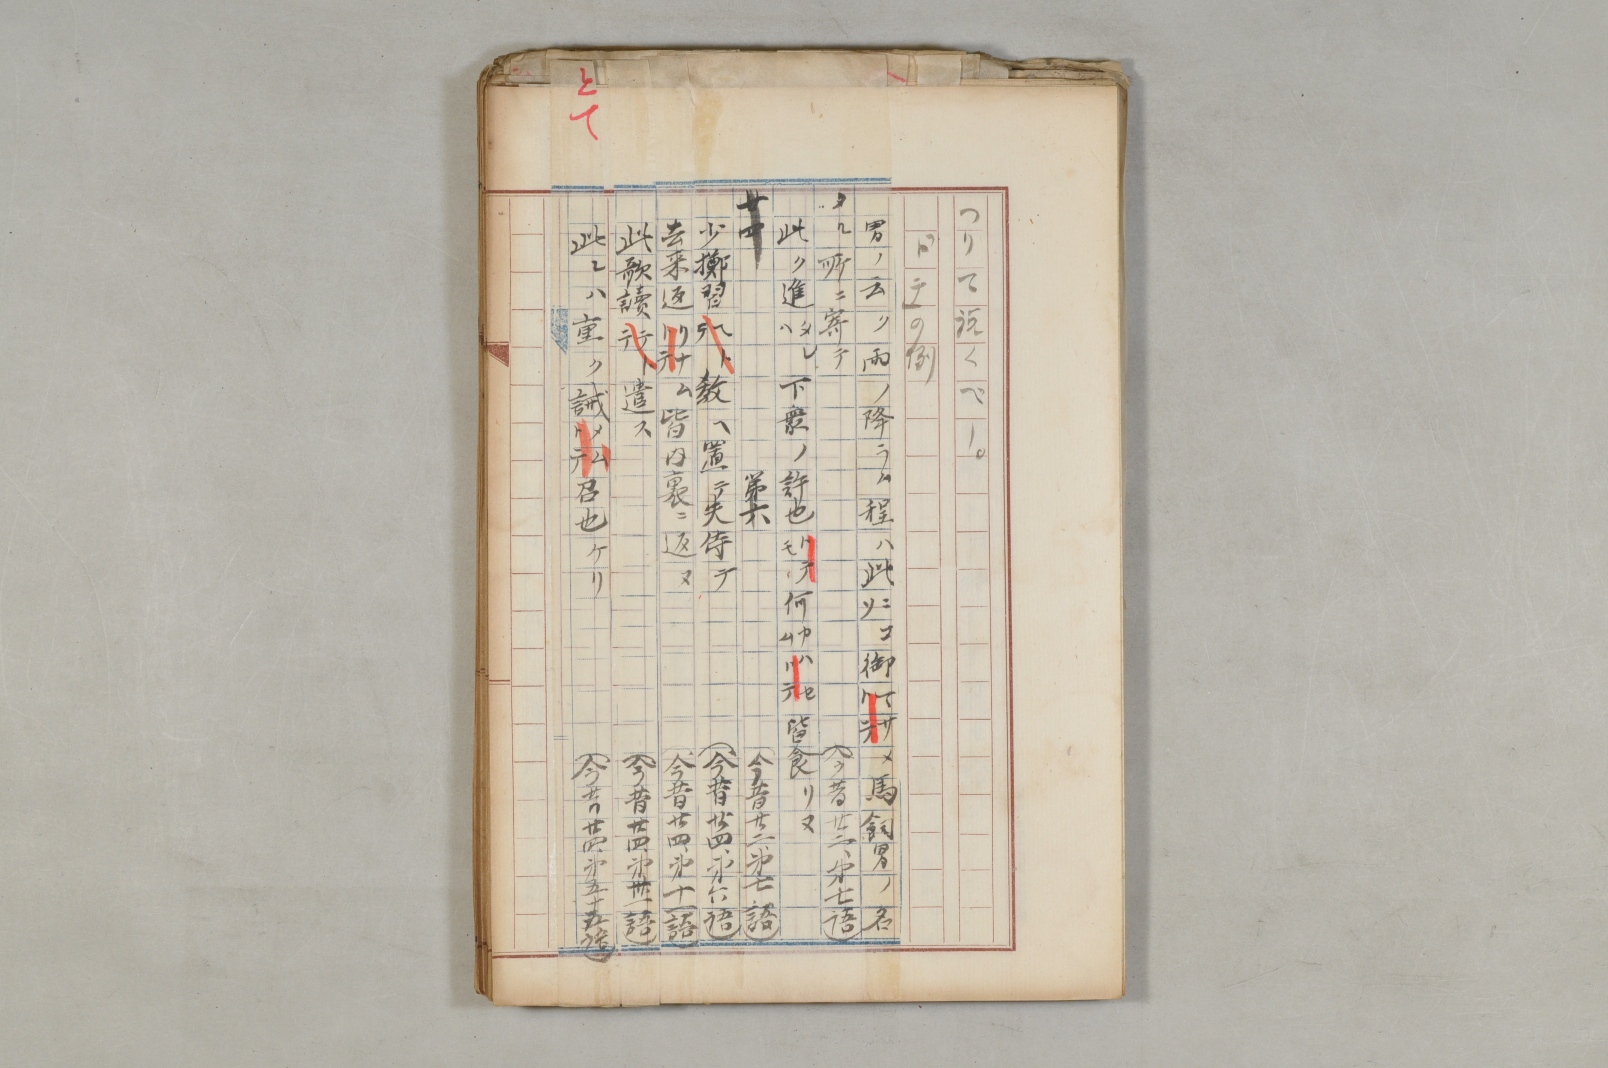 とて
つりて説くべし。
トテの例
男ノ云ク雨ノ降ラム程ハ此ニコソ御サメトテ馬飼男ノ名
メル所ニ寄テ（今昔廿二、第七語）
此ク進タレハ下衆ノ許也トテモ何カハセムトテ皆食リヌ
第六（今昔廿二、第七語）
少擲習ヘトテ教ヘ置テ失侍テ（今昔廿四、第六語）
去来返リナムトテ皆内裏ニ返ヌ（今昔廿四、第十一語）
此歌讀テトテ遣ス（今昔廿四、第卅一語）
此レハ重ク誡メムトテ召也ケリ（今昔廿四、第五十五語）